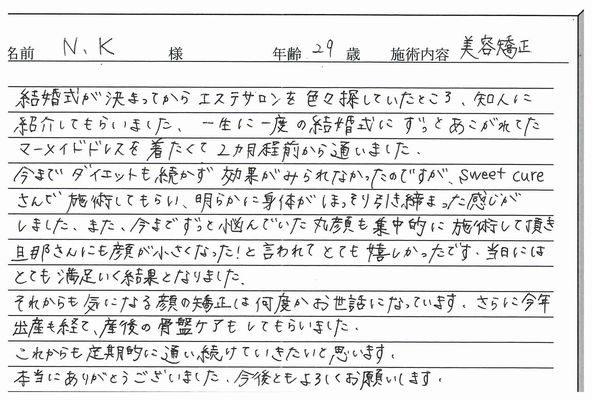 名前 N.K 様 年齢 29 歳 施術内容 美容矯正
結婚式が決まってからエステサロンを色々探していたところ、知人に
紹介してもらいました、一生に一度の結婚式にずっとあこがれてた
マーメイドドレスを着たくて2カ月程前から通いました.
今までダイエットも続かず効果がみられなかったのですが、sweet cure
さんで施術してもらい、明らかに身体がほっそり引き締まった感じが
しました、また、今までずっと悩んでいた丸顔も集中的に施術して頂き
旦那さんにも顔が小さくなった!と言われてとても嬉しかったです.当日には
とても満足いく結果となりました.
それからも気になる顔の矯正は何度かお世話になっています.さらに今年
出産も経て、産後の骨盤ケアもしてもらいました.
これからも定期的に通い続けていきたいと思います.
本当にありがとうございました.今後ともよろしくお願いします.